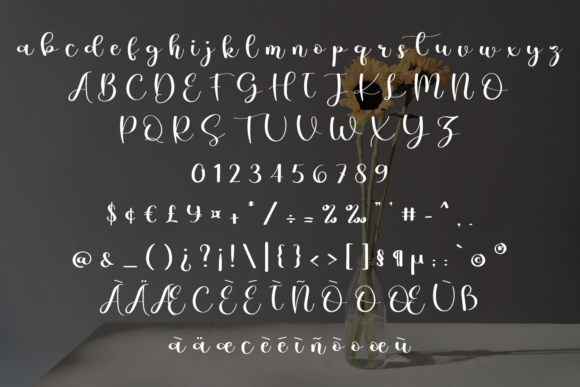 a b c d e f g h i j k l m n o p q r s t u v w x y z
A B C D E F G H I J K L M N O
P Q R S T U V W X Y Z
0 1 2 3 4 5 6 7 8 9
$ ¢ € £ ¥ ¤ + * / ÷ = % ‰ " ' # - ^ , .
@ & _ ( ) ¿ ? ¡ ! \ | { } < > [ ] § ¶ µ ; : ` ©
À Ä Æ C È É Ì Ñ Ò O Œ Ù B
à ä æ c è é ì ñ ò o œ ù